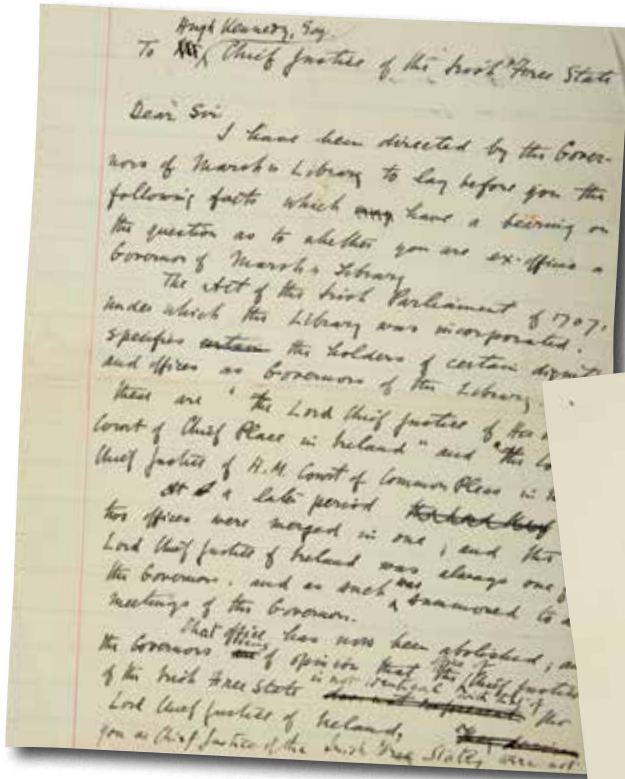 Hugh Kennedy, Esq.
To Chief Justice of the Irish Free State
Dear Sir
I have been directed by the Gover-
nors of Marsh's Library to lay before you the
following facts which may have a bearing on
the question as to whether you are ex-officio a
Governor of Marsh's Library
The Act of the Irish Parliament of 1707,
under which the Library was incorporated.
specifies certain the holders of certain
and offices as Governors of the Library.
these are "the Lord Chief Justice of Her
Court of Chief Place in Ireland" and "the
Chief Justice of H.M. Court of Common Pleas in
At a later period
two offices were merged in one; and the
Lord Chief Justice of Ireland was always one
the Governors, and as such was summoned to
meetings of the Governors.
That office has now been abolished;
the Governors of opinion that the office of Chief Justice
of the Irish Free State is not identical with that of the
Lord Chief Justice of Ireland,
you as Chief Justice of the Irish Free State, were not